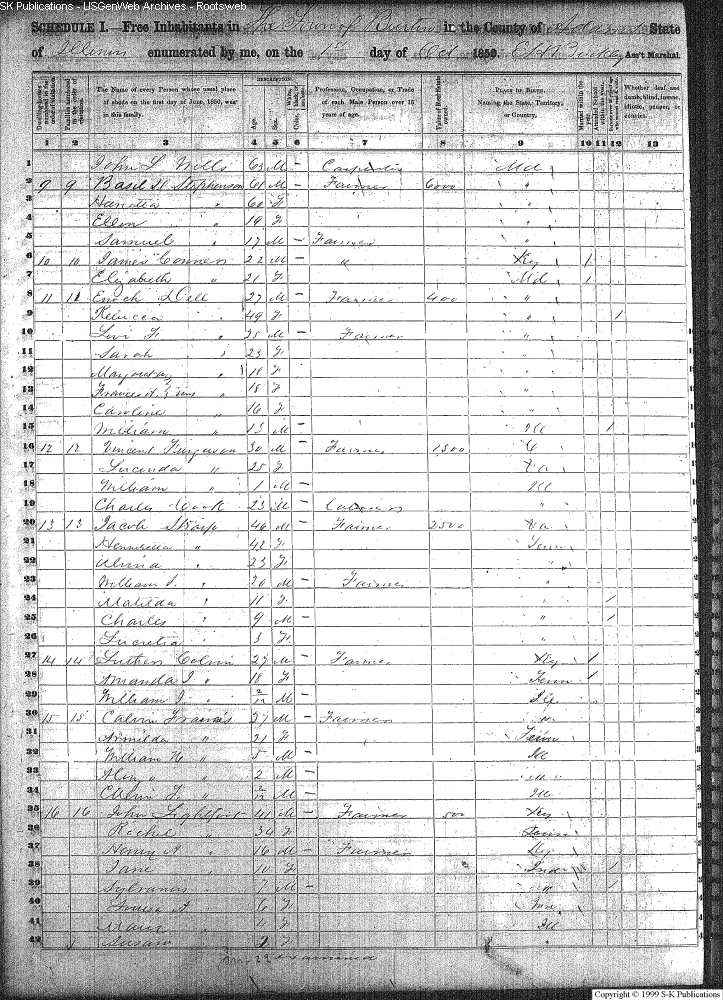 SK Publications - USGenWeb Archives - Rootsweb
SCHEDULE I. Free Inhabitants in The Town of Burton in the County of Adams State
of Illinois enumerated by me, on the 1st day of Oct 1850. Ass't Marshal.
Dwelling-houses numbered in the order of visitation. Families numbered in the order of visitation. The Name of every Person whose usual place of abode on the first day of June, 1850, was in this family. DESCRIPTION. Age. Sex. White, black, or mulatto. Color, Profession, Occupation, or Trade of each Male Person over 15 years of age. Value of Real Estate owned. PLACE OF BIRTH. Naming the State, Territory, or Country. Married within the year. Attended School within the year. Whether deaf and dumb, blind, insane, idiotic, pauper, or convict.
1 2 3 4 5 6 7 8 9 10 11 12 13
1 John L Wells 63 M - Carpenter Md
2 9 9 Basil Stephenson 61 M - Farmer 6000 "
3 " 60 F "
4 Ellen " 19 F "
5 Samuel " 17 M - Farmer "
6 10 10 James Conners 22 M - " Ky 1
7 Elizabeth " 21 F Md 1
8 11 11 Enoch 27 M - Farmer 400 "
9 Rebecca " 49 F " 1
10 Levi F " 25 M - Farmer "
11 Sarah " 23 F "
12 Margaret " 18 F "
13 Frances A 18 F "
14 Caroline " 16 F "
15 William " 13 M - Ill 1
16 12 12 Vincent Furguson 30 M - Farmer 1500
17 Lucinda " 25 F Va
18 William " 1 M - Ill
19 Charles Cook 23 M - "
20 13 13 Jacob Sharp 46 M - Farmer 2500 Va
21 " 42 F Tenn
22 " 23 F "
23 William " 20 M - Farmer "
24 Matilda " 11 F " 1
25 Charles " 9 M - " 1
26 Lucretia " 3 F "
27 14 14 Luther Colvin 27 M - Farmer Ky 1
28 Amanda J " 18 F Tenn 1
29 William J " 2/12 M - Ill
30 15 15 Calvin Francis 27 M - Farmer "
31 Armilda " 21 F Tenn
32 William H " 5 M - Ill
33 " 2 M - "
34 " 2/12 M - Ill
35 16 16 John Lightfoot 41 M - Farmer 500 Ky
36 Rachel " 34 F Tenn
37 Henry A " 16 M - Farmer Ky
38 Jane " 10 F 1
39 Sylvanus " 7 M - " 1
40 Louisa A 6 F
41 " 4 F Ill
42 Susan " F "
examined
Copyright © 1999 S-K Publications